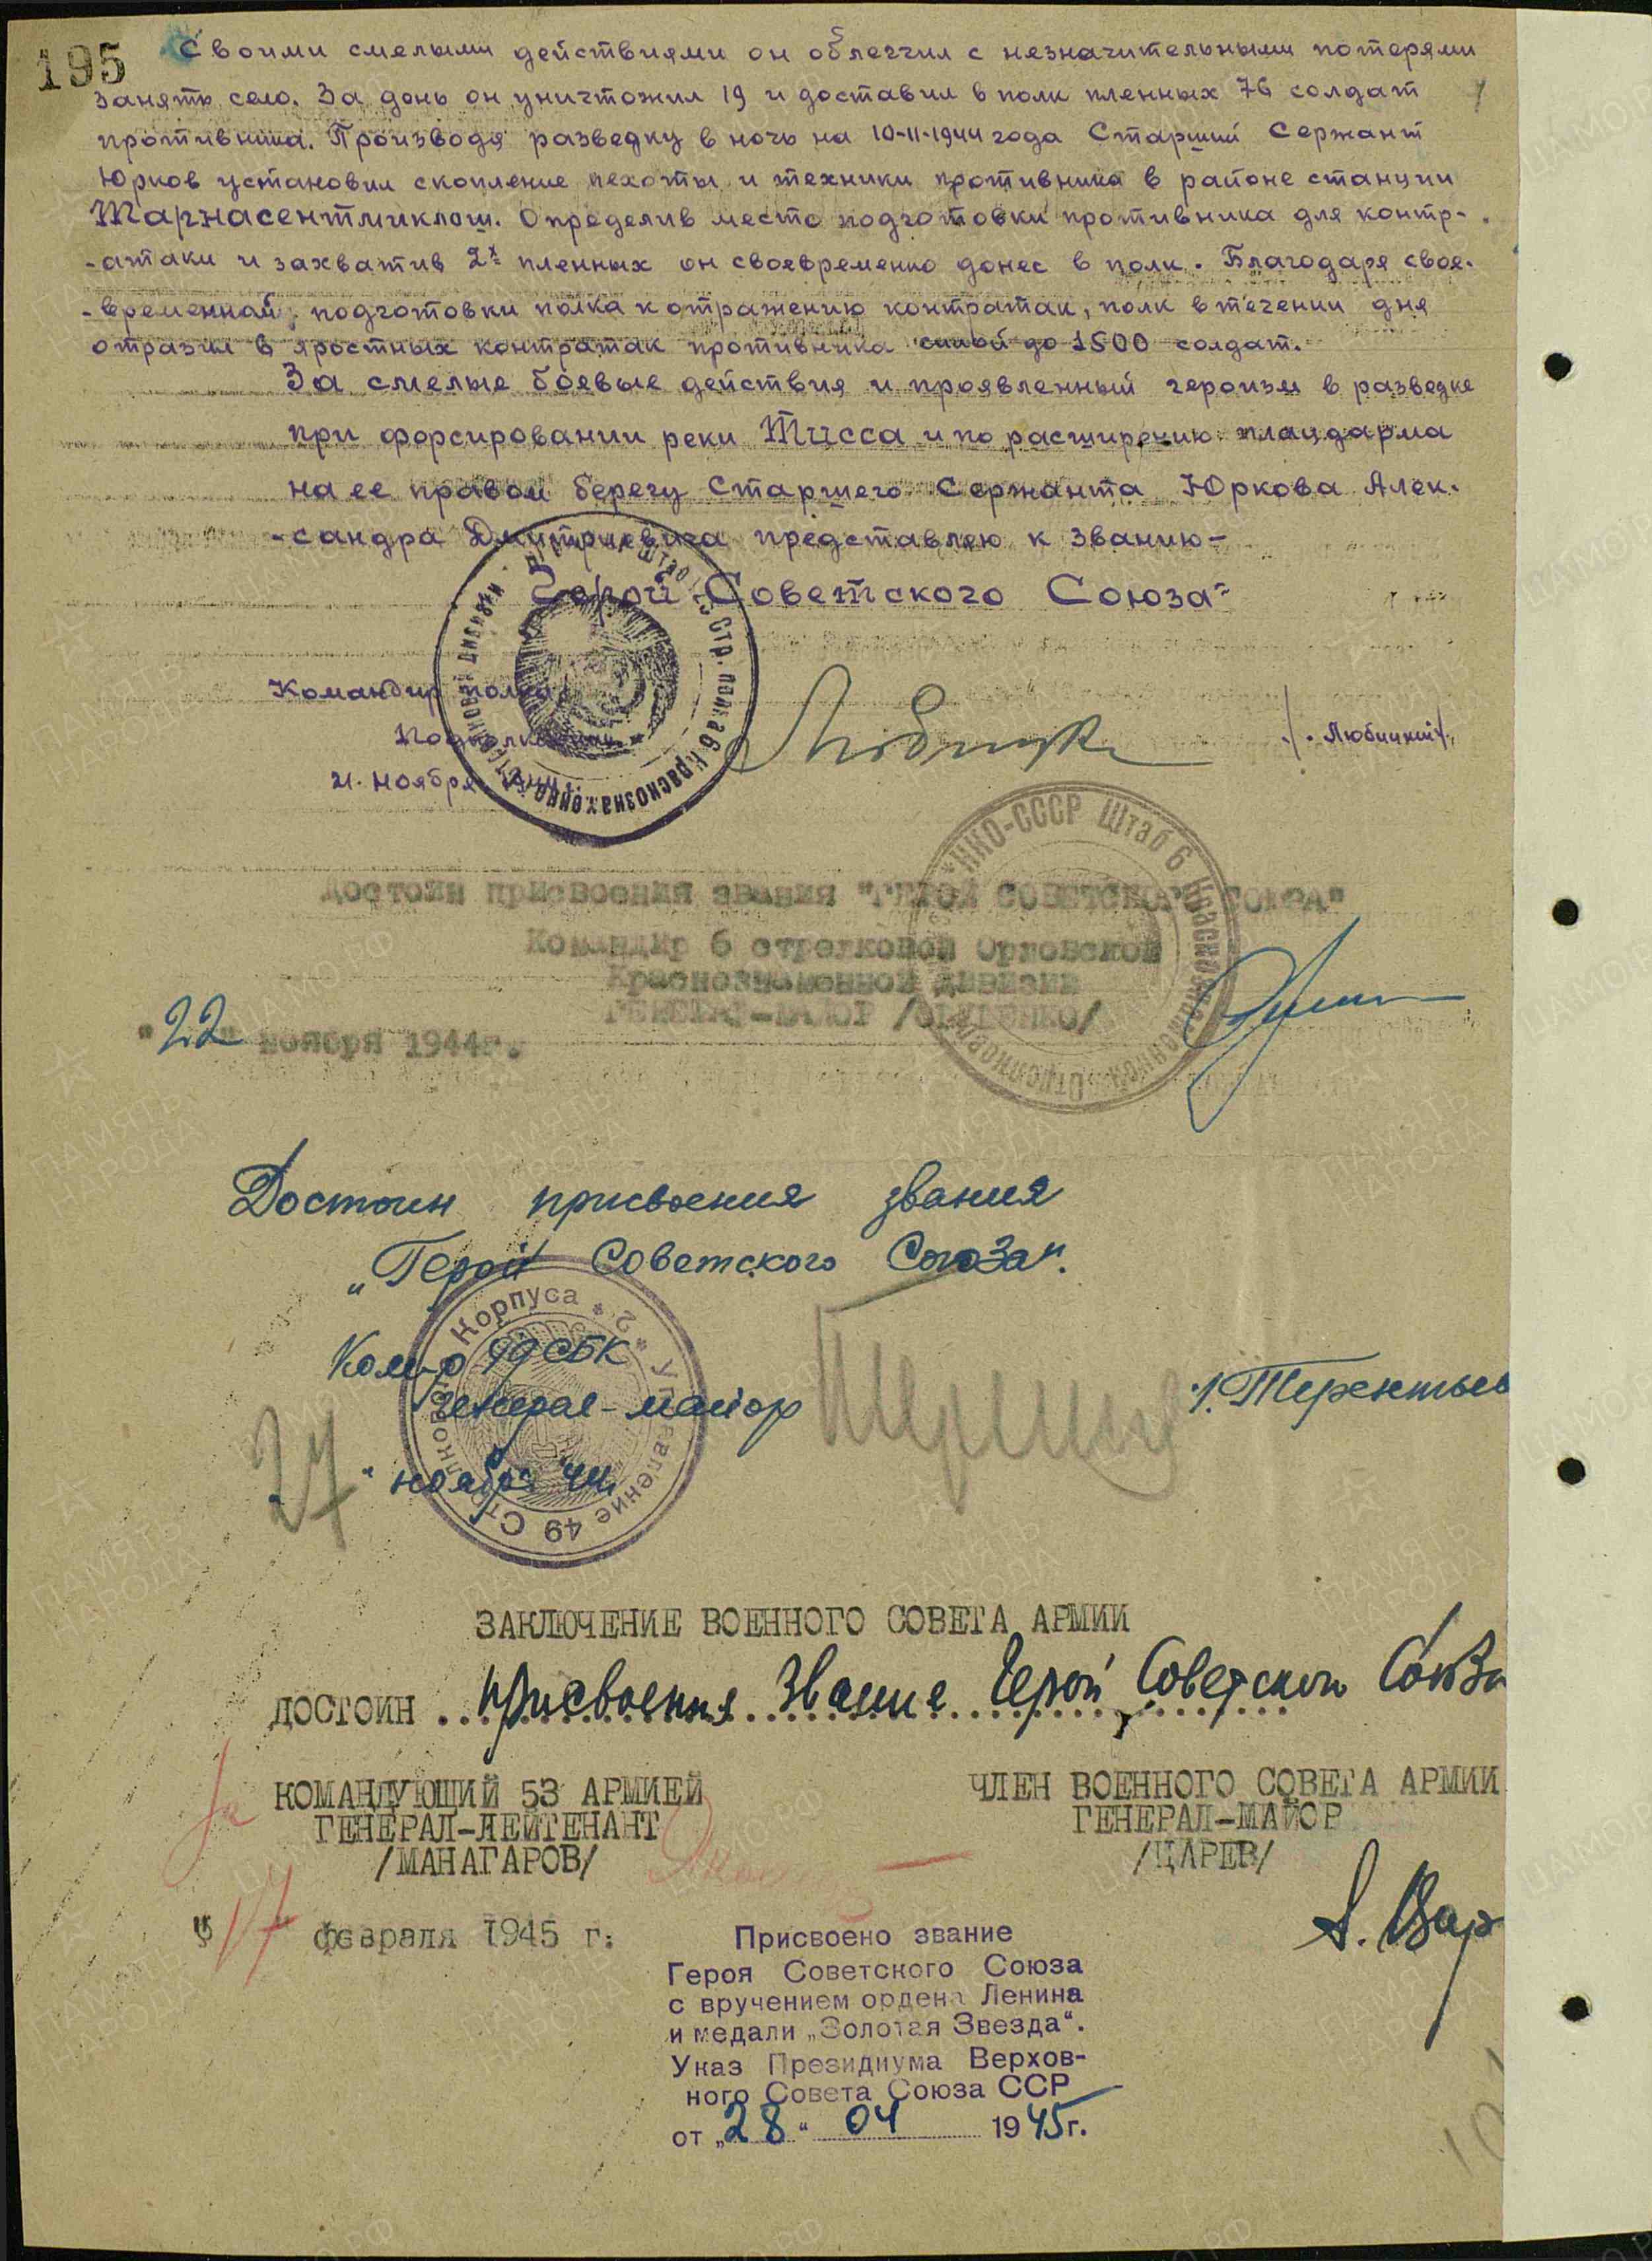 195
Своими смелыми действиями он облегчил с незначительными потерями
занять село. За день он уничтожил 19 и доставил в полк пленных 76 солдат
противника. Производя разведку в ночь на 10-11-1944 года Старший Сержант
Юрков установил скопление пехоты и техники противника в районе станции
Тарнасентмиклош. Определив место подготовки противника для контр-
-атаки и захватив 2х пленных он своевременно донес в полк. Благодаря свое-
-временной подготовки полка к отражению контратак, полк в течении дня
отразил 8 яростных контратак противника силой до 1500 солдат.
За смелые боевые действия и проявленный героизм в разведке
при форсировании реки Тисса и по расширению плацдарма
на ее правом берегу Старшего Сержанта Юркова Алек-
-сандра Дмитриевича представляю к званию-
Герой Советского Союза-
Командир полка
Подполковник
/Любицкий/
21. Ноября 1944 г.
Стр. полка 6 Краснознаменной
НКО-СССР Штаб 6 Краснознаменной
достоин присвоения звания "ГЕРОЙ СОВЕТСКОГО СОЮЗА"
Командир 6 стрелковой Орловской
Краснознаменной дивизии
ГЕНЕРАЛ-МАЙОР /ОБУШЕНКО/
"22" ноября 1944г.
Достоин присвоения звания
„Герой Советского Союза".
Ком-р 49 СБК
генерал-майор
/. Терентьев
27 " ноября 44
Управление 49 Стрелкового Корпуса * 2 *
ЗАКЛЮЧЕНИЕ ВОЕННОГО СОВЕТА АРМИИ
ДОСТОИН присвоения Звание Герой Советского Союза
КОМАНДУЮЩИЙ 53 АРМИЕЙ
ГЕНЕРАЛ-ЛЕЙТЕНАНТ
/МАНАГАРОВ/
ЧЛЕН ВОЕННОГО СОВЕТА АРМИИ
ГЕНЕРАЛ-МАЙОР
/ЦАРЕВ/
"17" февраля 1945 г.
Присвоено звание
Героя Советского Союза
с вручением ордена Ленина
и медали „Золотая Звезда".
Указ Президиума Верхов-
ного Совета Союза ССР
от „28" 04 1945г.
ПАМЯТЬ НАРОДА
ЦАМО.РФ